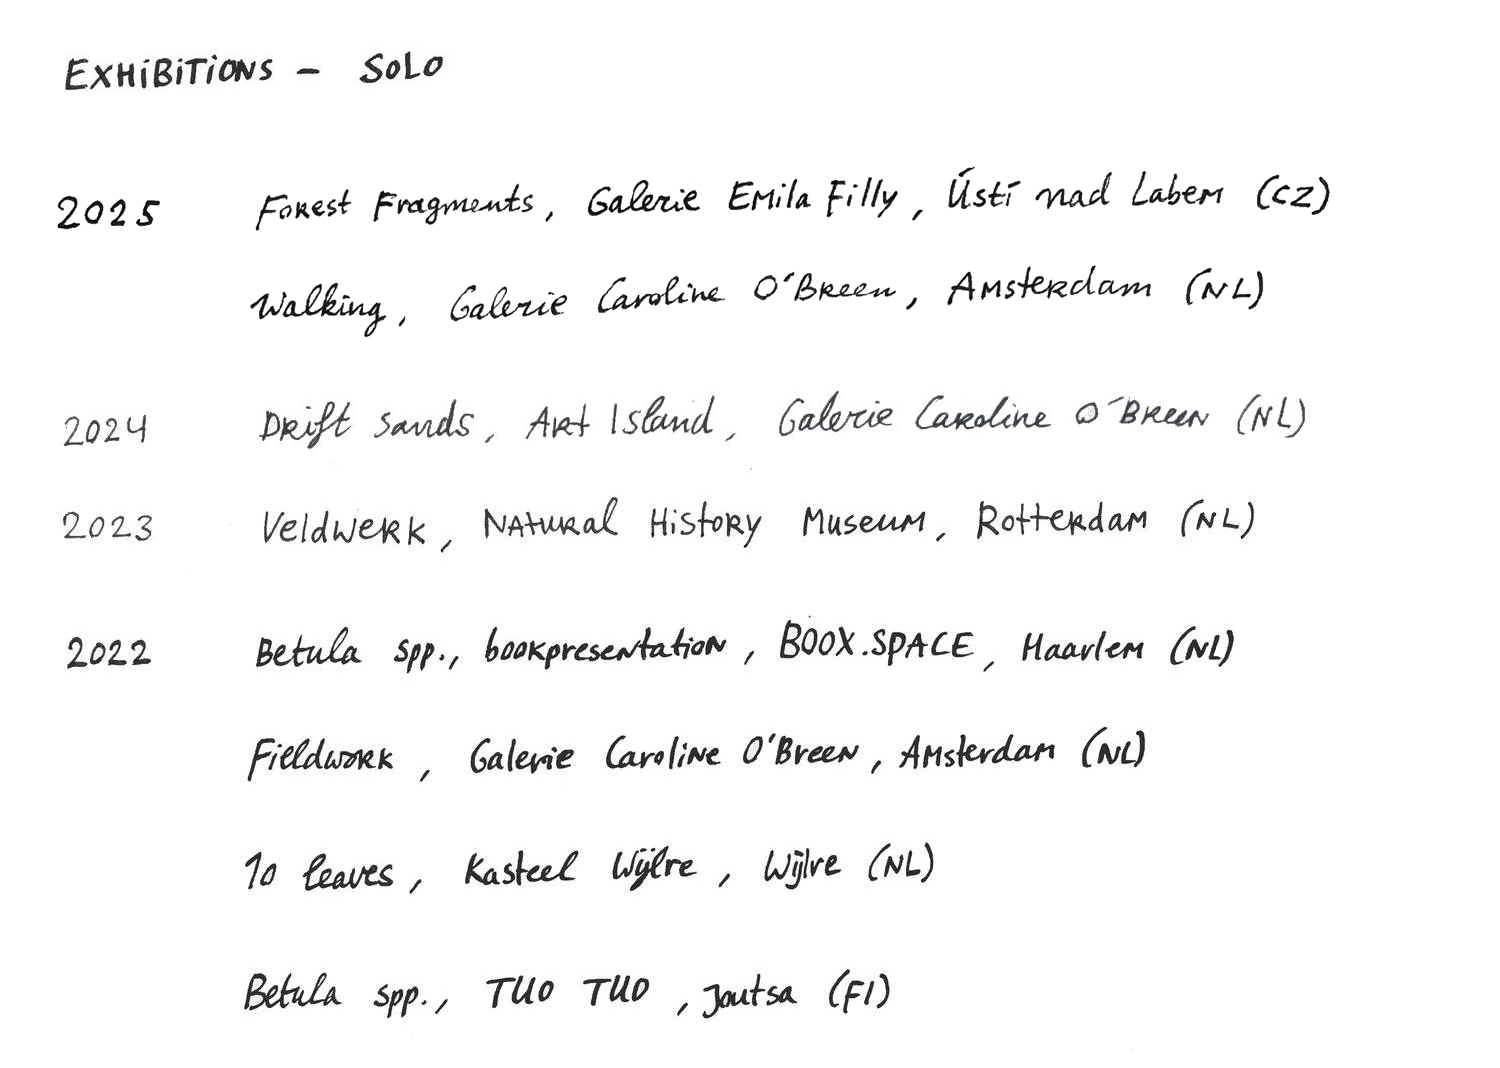 EXHiBiTiONS - SOLO
2025 Forest Fragments, Galerie Emila Filly, Ústí nad Labem (CZ)
Walking, Galerie Caroline O'Breen, Amsterdam (NL)
2024 Drift sands, Art Island, Galerie Caroline O'Breen (NL)
2023 Veldwerk, Natural History Museum, Rotterdam (NL)
2022 Betula spp., bookpresentation, BOOX.SPACE, Haarlem (NL)
Fieldwork, Galerie Caroline O'Breen, Amsterdam (NL)
10 leaves, Kasteel Wijlre, Wijlre (NL)
Betula spp., TUO TUO, Joutsa (FI)